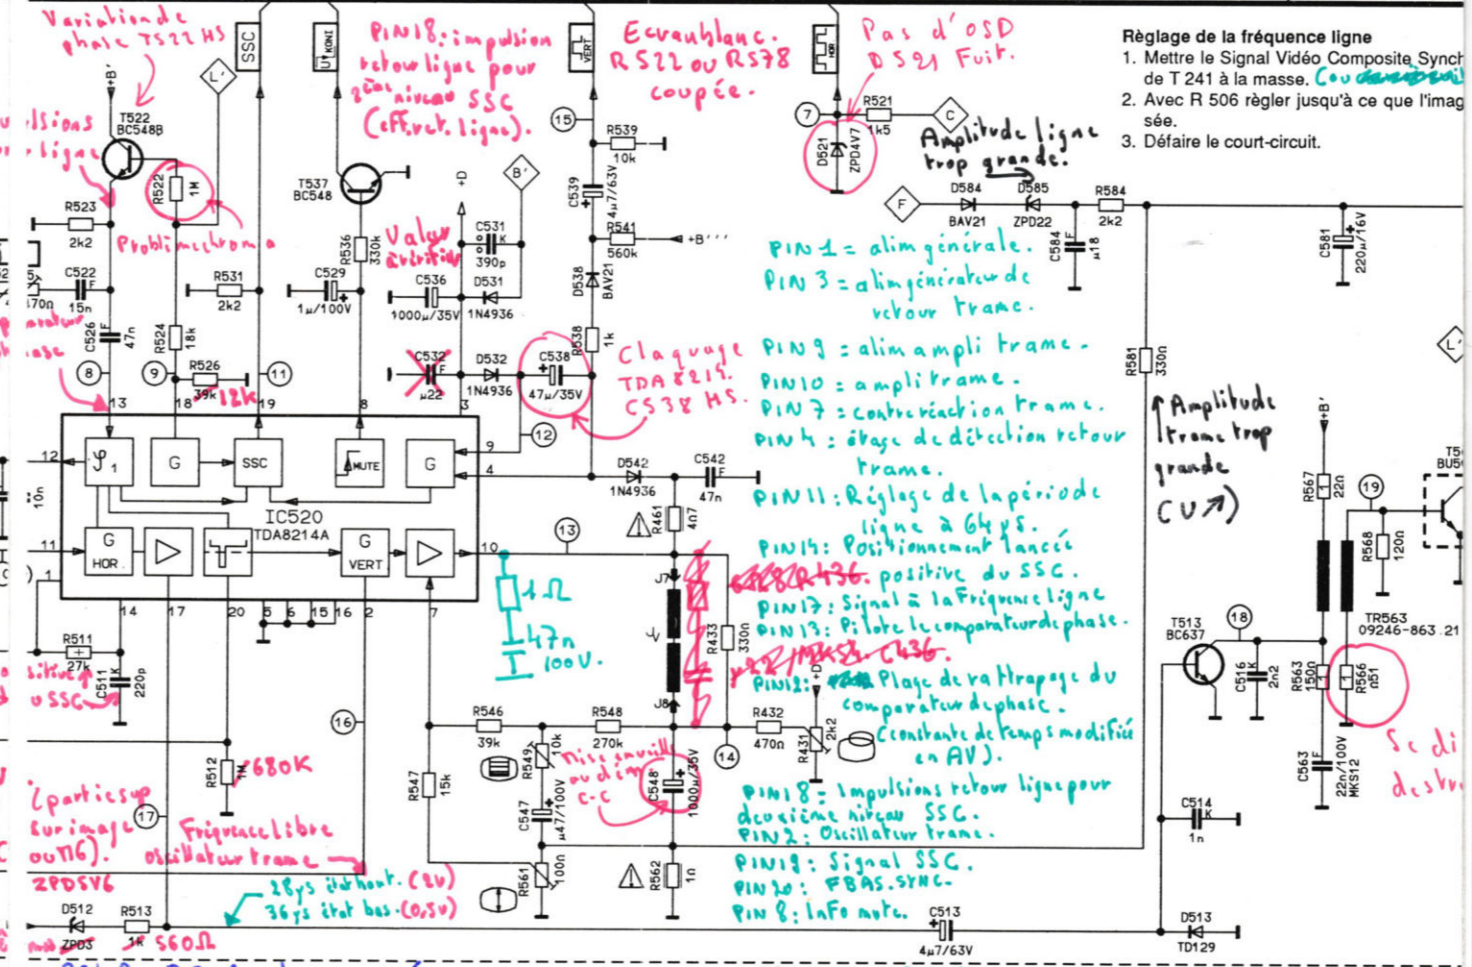 Variation de
phase T522 HS
SSC
U KONI
PIN18: impulsion
retour ligne pour
2ème niveau SSC
(eff.ret. ligne).
VERT
Ecran blanc.
R522 ou R578
coupée.
HOR
Pas d'OSD
D521 Fuit.
Règlage de la fréquence ligne
1. Mettre le Signal Vidéo Composite Synch
de T 241 à la masse. (ou
2. Avec R 506 règler jusqu'à ce que l'imag
sée.
3. Défaire le court-circuit.
+B'
L'
T522
BC548B
R522
1M
R523
2k2
Problème chroma
C522
F
15n
470n
C526
F
47n
R524
18k
R526
39k
12K
R531
2k2
T537
BC548
R536
330k
C529
1µ/100V
Valeur
à vérifier
+D
B'
C531
K
390p
C536
1000µ/35V
D531
1N4936
C532
F
µ22
D532
1N4936
C538
47µ/35V
Claquage
TDA8214.
C538 HS.
15
R539
10k
C539
4µ7/63V
R541
560k
+B'''
D538
BAV21
R538
1k
7
D521
ZPD4V7
R521
1k5
C
Amplitude ligne
trop grande.
F
D584
BAV21
D585
ZPD22
C584
F
µ18
R584
2k2
C581
220µ/16V
R581
330n
L'
PIN 1 = alim générale.
PIN 3 = alim générateur de
retour trame.
PIN 9 = alim ampli trame.
PIN10 = ampli trame.
PIN 7 = contre réaction trame.
PIN 4 = étage de détection retour
trame.
PIN 11: Réglage de la période
ligne à 64 µs.
PIN14: Positionnement lancée
positive du SSC.
PIN17: Signal à la Fréquence ligne
PIN13: Pilote le comparateur de phase.
PIN12: Plage de rattrapage du
comparateur de phase.
(constante de temps modifiée
en AV).
PIN18= Impulsions retour ligne pour
deuxième niveau SSC.
PIN 2: Oscillateur trame.
PIN19: Signal SSC.
PIN 20: FBAS.SYNC.
PIN 8: Info mute.
Amplitude
trame trop
grande
(U↗)
8
9
11
12
13
18
19
8
3
φ1
G
SSC
MUTE
G
9
4
IC520
TDA8214A
12
11
1
10n
G
HOR.
G
VERT
10
14
17
20
5
6
15
16
2
7
13
D542
1N4936
C542
F
47n
R461
4n7
1Ω
47n
100V.
J7
J8
R436.
C436.
R433
330n
R511
27k
C511
K
220p
SSC
R512
1M
680K
16
17
R546
39k
R548
270k
R549
10k
R547
15k
C547
µ47/100V
C548
1000µ/35V
R432
470n
14
+D
R431
2k2
R561
100n
R562
1n
partie sup
sur image
ZPD5V6
Fréquence libre
oscillateur trame
28µs état haut. (2V)
36µs état bas. (0,5V)
D512
ZPD3
R513
1k
560Ω
C513
4µ7/63V
+B'
R567
22n
19
R568
120n
TR563
09246-863.21
T513
BC637
18
C516
K
2n2
R563
150n
R566
n51
C563
F
22n/100V
MKS12
C514
K
1n
D513
TD129